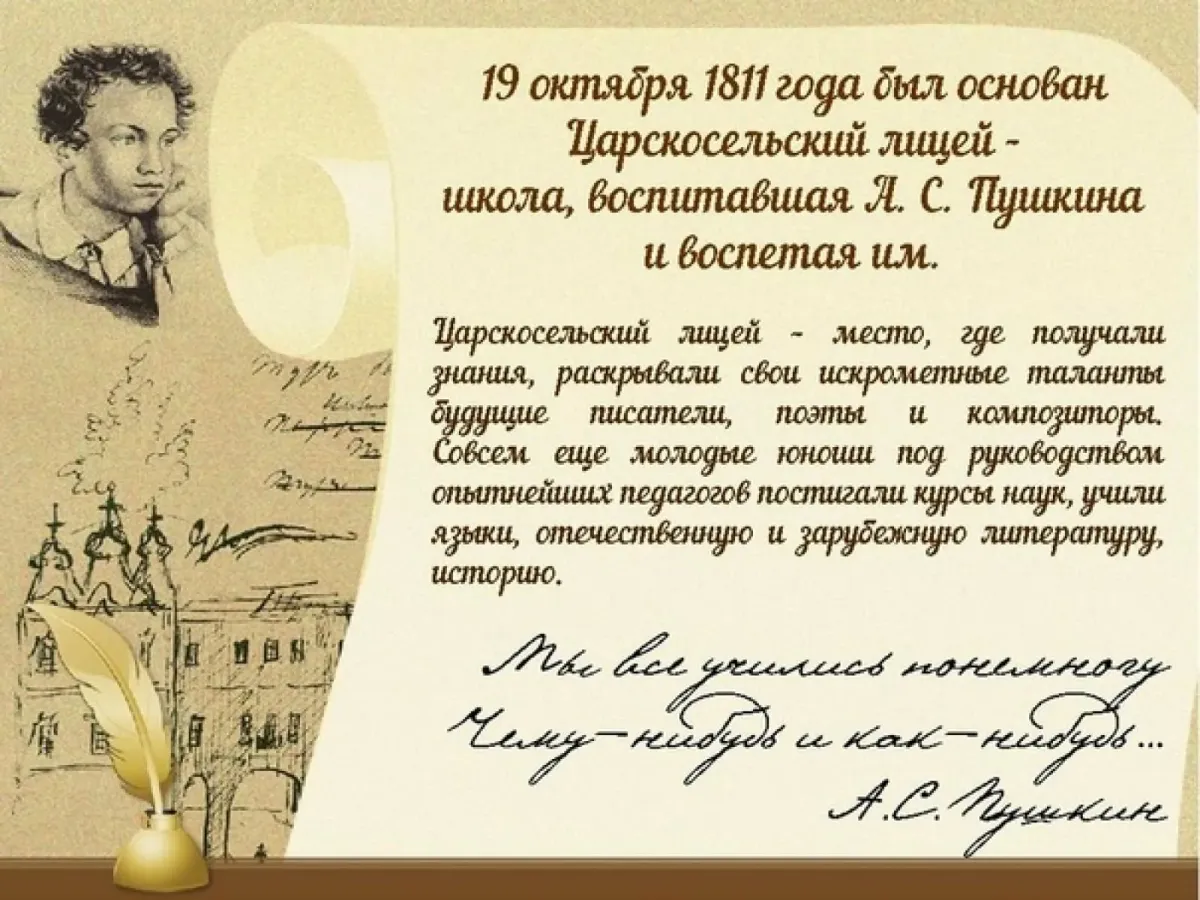 19 октября 1811 года был основан
Царскосельский лицей -
школа, воспитавшая А. С. Пушкина
и воспетая им.
Царскосельский лицей - место, где получали
знания, раскрывали свои искрометные таланты
будущие писатели, поэты и композиторы.
Совсем еще молодые юноши под руководством
опытнейших педагогов постигали курсы наук, учили
языки, отечественную и зарубежную литературу,
историю.
Мы все учились понемногу
Чему-нибудь и как-нибудь...
А.С. Пушкин